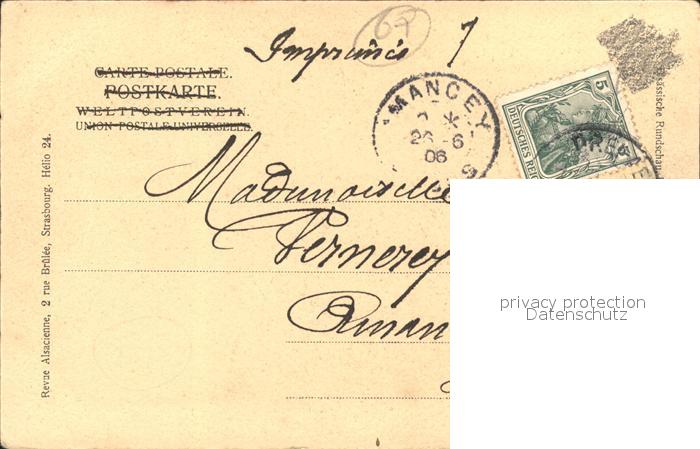 67
Imprimés 7
CARTE POSTALE.
POSTKARTE.
WELTPOSTVEREIN.
UNION POSTALE UNIVERSELLE.
MANCEY
26-6
06
5
DEUTSCHES REICH
Mademoiselle
Vernerey
privacy protection
Datenschutz
Revue Alsacienne, 2 rue Brûlée, Strasbourg. Hélio 24.